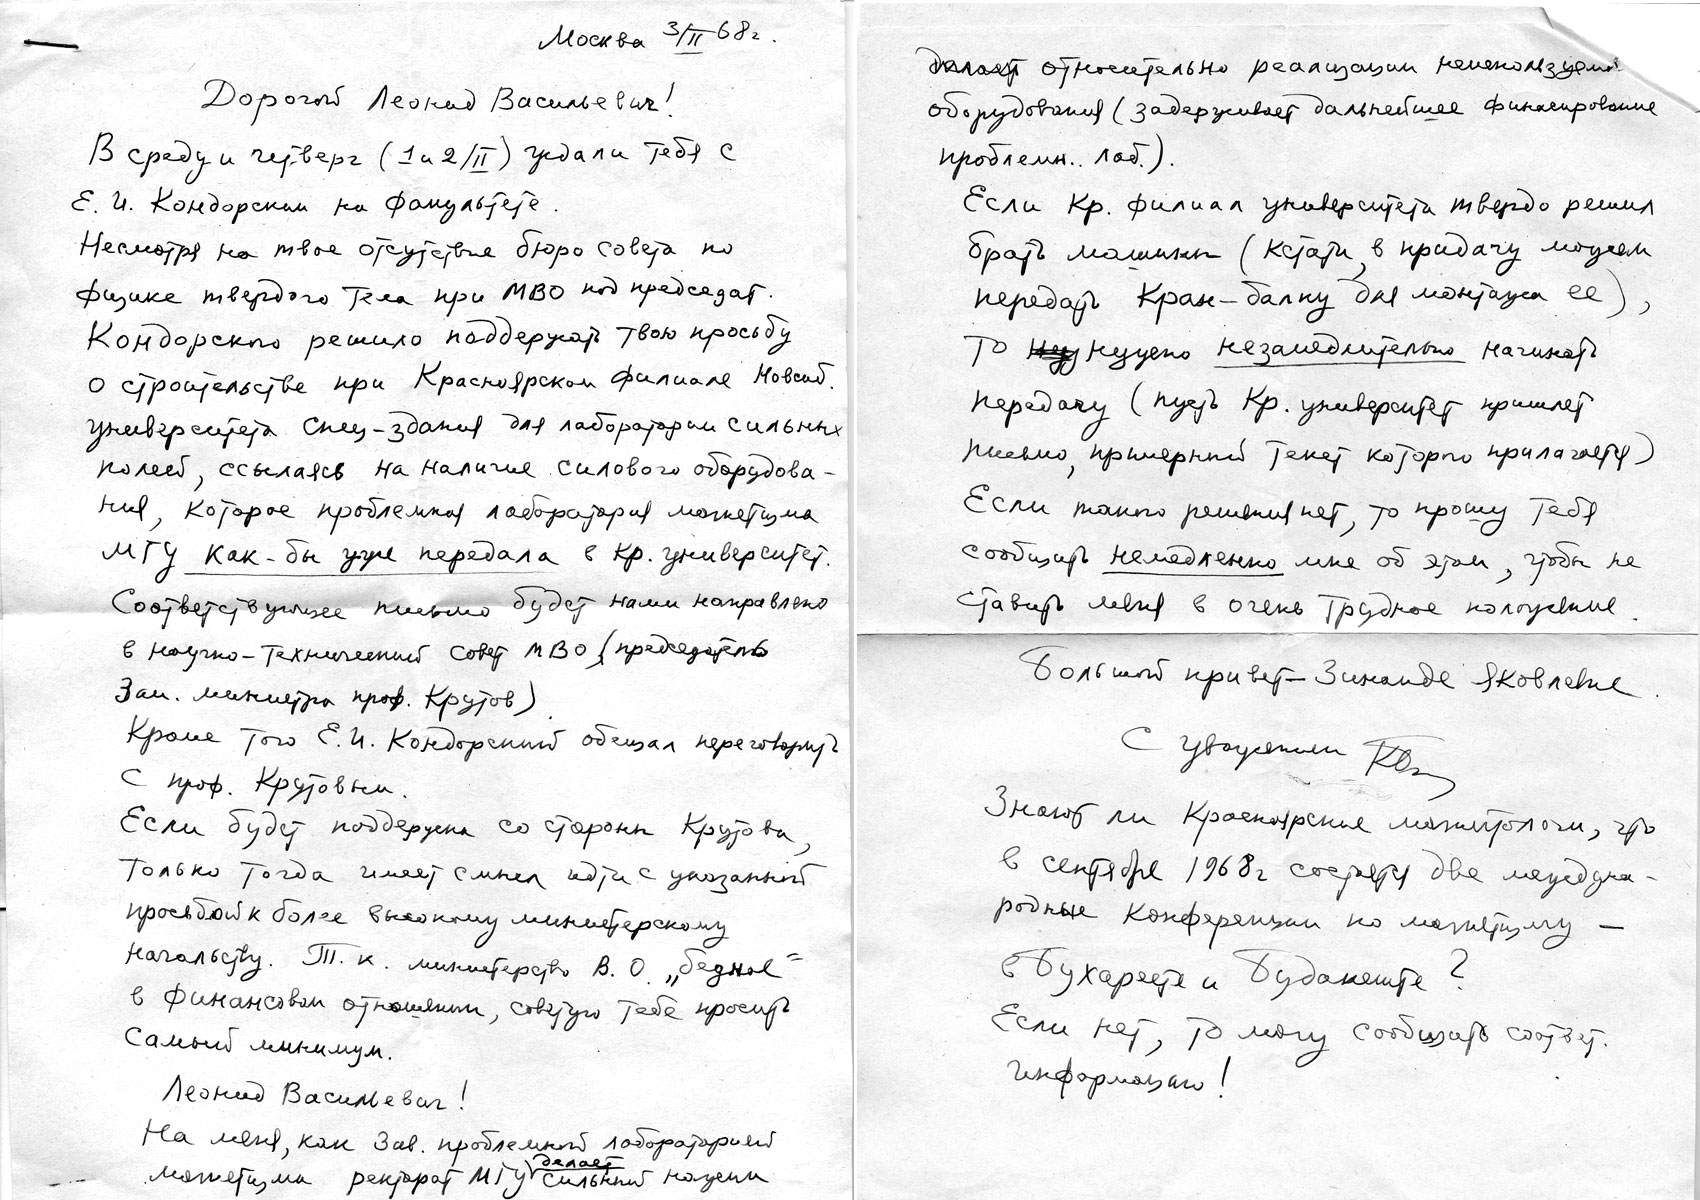 Москва 3/II 68г.
Дорогой Леонид Васильевич!
В среду и четверг (1 и 2/II) ждали тебя с
Е. И. Кондорским на факультете.
Несмотря на твое отсутствие бюро совета по
физике твердого тела при МВО под председат.
Кондорского решило поддержать твою просьбу
о строительстве при Красноярском филиале Новсиб.
университета спец-здания для лаборатории сильных
полей, ссылаясь на наличие силового оборудова-
ния, которое проблемная лаборатория магнетизма
МГУ как-бы уже передала в Кр. университет.
Соответствующее письмо будет нами направлено
в научно-технический совет МВО (председатель
Зам. министра проф. Крутов)
Кроме того Е. И. Кондорский обещал переговорить
с проф. Крутовым.
Если будет поддержка со стороны Крутова,
только тогда имеет смысл идти с указанной
просьбой к более высокому министерскому
начальству. Т. к. министерство В. О. „бедное"
в финансовом отношении, советую тебе просить
самый минимум.
Леонид Васильевич!
На меня, как Зав. проблемной лабораторией
магнетизма ректорат МГУ делает сильный нажим
делает относительно реализации неиспользуемого
оборудования (задерживает дальнейшее финансирование
проблемн.. лаб.).
Если Кр. филиал университета твердо решил
брать машины (кстати, в придачу можем
передать Кран-балку для монтажа ее),
то нуж нужно незамедлительно начинать
передачу (пусть Кр. университет пришлет
письмо, примерный текст которого прилагается)
Если такого решения нет, то прошу тебя
сообщить немедленно мне об этом, чтобы не
ставить меня в очень трудное положение.
Большой привет – Зинаиде Яковлевне.
С уважением
Знают ли Красноярские магнитологи, что
в сентябре 1968г состоятся две междуна-
родные конференции по магнетизму –
в Бухаресте и Будапеште?
Если нет, то могу сообщить соответ.
информацию!